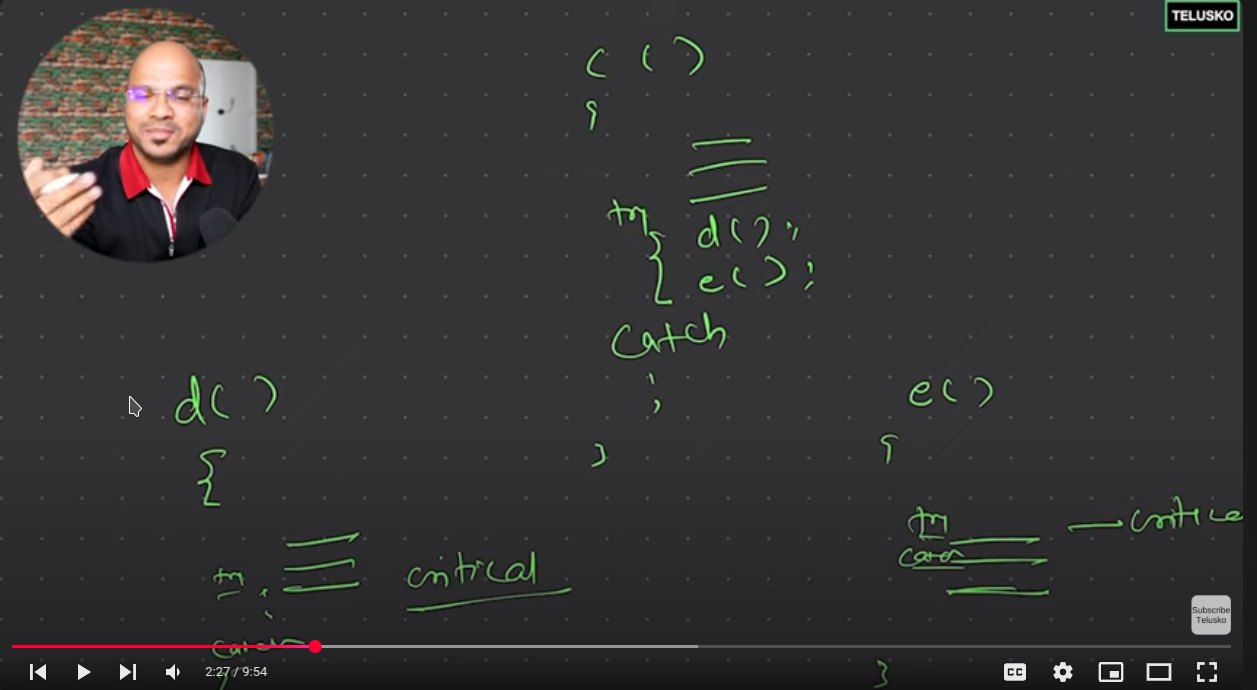 TELUSKO
c ( )
{
try
{ d ( ) ;
e ( ) ;
catch
;
}
d ( )
{
critical
try
;
catch
e ( )
{
try
catch
— critica
}
Subscribe
Telusko
2:27 / 9:54
CC